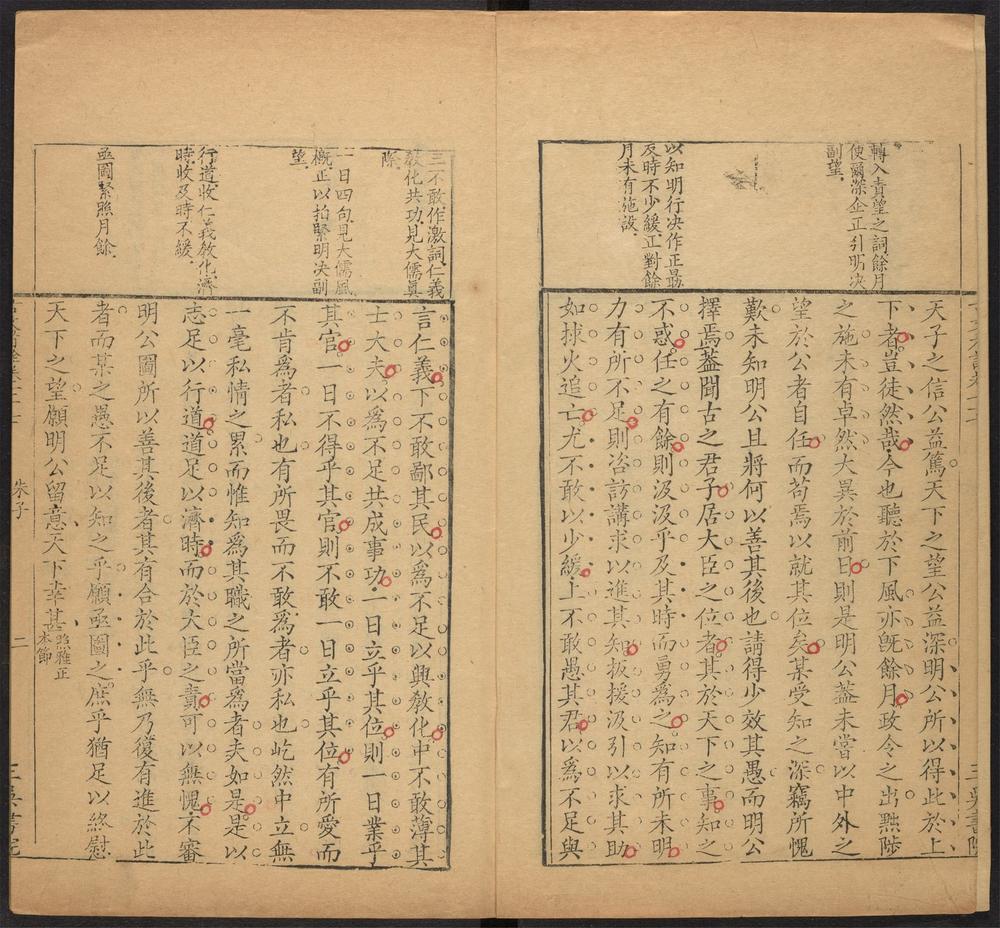 轉入責望之詞餘月
使爾深企正引明决
副望
以知明行决作正最
反時不少緩正對餘
月未有施設
天子之信公益篤天下之望公益深明公所以得此於上
下者豈徒然哉今也聽於下風亦旣餘月政令之出黜陟
之施未有卓然大異於前日則是明公蓋未嘗以中外之
望於公者自任而苟焉以就其位矣某受知之深竊所愧
歎未知明公且將何以善其後也請得少效其愚而明公
擇焉蓋聞古之君子居大臣之位者其於天下之事知之
不惑任之有餘則汲汲乎及其時而勇爲之知有所未明
力有所不足則咨訪講求以進其知扳援汲引以求其助
如捄火追亡尤不敢以少緩上不敢愚其君以爲不足與
三不敢作激詞仁義
敎化共功見大儒眞
際
一日四句見大儒風
概正以拍緊明决副
望
行道收仁義敎化濟
時收及時不緩
亟圖緊照月餘
言仁義下不敢鄙其民以爲不足以興敎化中不敢薄其
士大夫以爲不足共成事功一日立乎其位則一日業乎
其官一日不得乎其官則不敢一日立乎其位有所愛而
不肯爲者私也有所畏而不敢爲者亦私也屹然中立無
一毫私情之累而惟知爲其職之所當爲者夫如是是以
志足以行道道足以濟時而於大臣之責可以無愧不審
明公圖所以善其後者其有合於此乎無乃復有進於此
者而某之愚不足以知之乎願亟圖之庶乎猶足以終慰
天下之望願明公留意天下幸甚
照雅正
本節
朱子
二